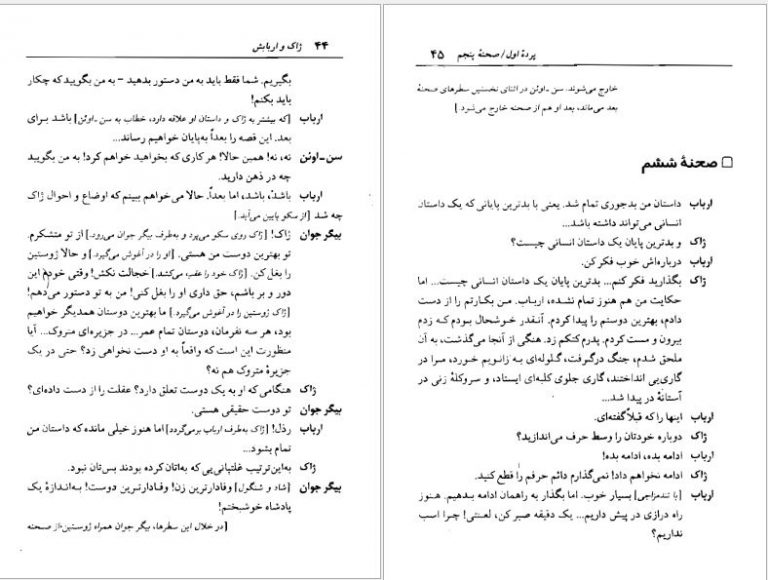 ۴۴ ژاک و اربابش
بگیریم. شما فقط باید به من دستور بدهید – به من بگویید که چکار
باید بکنم!
ارباب [که بیشتر به ژاک و داستان او علاقه دارد، خطاب به سن-اوئن] باشد برای
بعد. این قصه را بعداً به‌پایان خواهیم رساند...
سن-اوئن نه، نه! همین حالا! هر کاری که بخواهید خواهم کرد! به من بگویید
چه در ذهن دارید.
ارباب باشد، باشد، اما بعداً. حالا می‌خواهم ببینم که اوضاع و احوال ژاک
چه شد [از سکو پایین می‌آید.]
بیگر جوان ژاک! [ژاک روی سکو می‌پرد و به‌طرف بیگر جوان می‌رود.] از تو متشکرم.
تو بهترین دوست من هستی. [او را در آغوش می‌گیرد.] و حالا ژوستین
را بغل کن. [ژاک خود را عقب می‌کشد.] خجالت نکش! وقتی خودم این
دور و بر باشم، حق داری او را بغل کنی! من به تو دستور می‌دهم!
[ژاک ژوستین را در آغوش می‌گیرد.] ما بهترین دوستان همدیگر خواهیم
بود، هر سه نفرمان، دوستان تمام عمر... در جزیره‌ای متروک... آیا
منظورت این است که واقعاً به او دست نخواهی زد؟ حتی در یک
جزیرهٔ متروک هم نه؟
ژاک هنگامی که او به یک دوست تعلق دارد؟ عقلت را از دست داده‌ای؟
بیگر جوان تو دوست حقیقی هستی.
ارباب رذل! [ژاک به‌طرف ارباب برمی‌گردد] اما هنوز خیلی مانده که داستان من
تمام بشود...
ژاک به‌این‌ترتیب غلتبانی‌یی که به‌اتان کرده بودند بس‌تان نبود.
بیگر جوان [شاد و شنگول] وفادارترین زن! وفادارترین دوست! به‌اندازهٔ یک
پادشاه خوشبختم!
[در خلال این سطرها، بیگر جوان همراه ژوستین از صحنه
پردهٔ اول/صحنهٔ پنجم ۴۵
خارج می‌شوند. سن-اوئن در اثنای نخستین سطرهای صحنهٔ
بعد می‌ماند، بعد او هم از صحنه خارج می‌شود.]
□ صحنهٔ ششم
ارباب داستان من بدجوری تمام شد. یعنی با بدترین پایانی که یک داستان
انسانی می‌تواند داشته باشد...
ژاک و بدترین پایان یک داستان انسانی چیست؟
ارباب درباره‌اش خوب فکر کن.
ژاک بگذارید فکر کنم... بدترین پایان یک داستان انسانی چیست... اما
حکایت من هم هنوز تمام نشده، ارباب. من بکارتم را از دست
دادم، بهترین دوستم را پیدا کردم. آنقدر خوشحال بودم که زدم
بیرون و مست کردم. پدرم کتکم زد. هنگی از آنجا می‌گذشت، به آن
ملحق شدم، جنگ درگرفت، گلوله‌ای به زانویم خورد، مرا در
گاری‌یی انداختند، گاری جلوی کلبه‌ای ایستاد، و سروکلهٔ زنی در
آستانهٔ در پیدا شد...
ارباب اینها را که قبلاً گفته‌ای.
ژاک دوباره خودتان را وسط حرف می‌اندازید؟
ارباب ادامه بده، ادامه بده!
ژاک ادامه نخواهم داد! نمی‌گذارم دائم حرفم را قطع کنید.
ارباب [با تندمزاجی] بسیار خوب. اما بگذار به راهمان ادامه بدهیم. هنوز
راه درازی در پیش داریم... یک دقیقه صبر کن، لعنتی! چرا اسب
نداریم؟